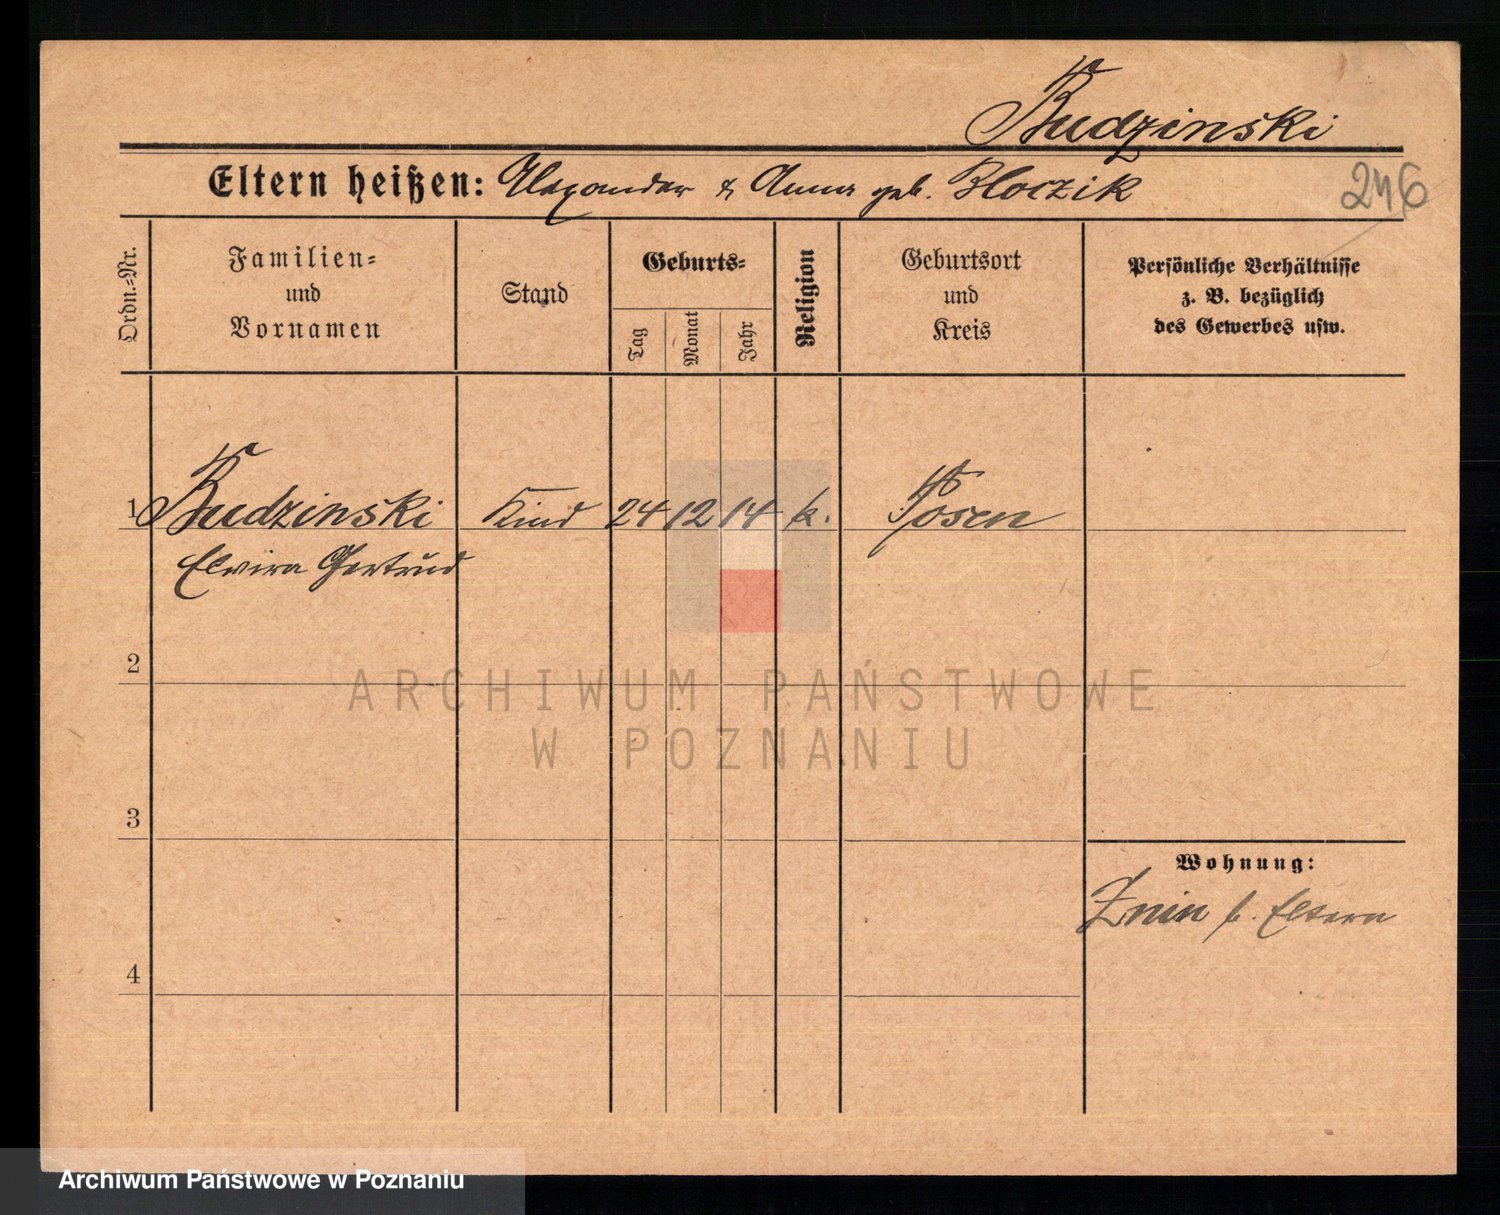 Budzinski
Eltern heißen: Alexander & Anna geb. Bloczik
246
Ordn.-Nr.
Familien-
und
Vornamen
Stand
Geburts-
Tag
Monat
Jahr
Religion
Geburtsort
und
Kreis
Persönliche Verhältnisse
z. B. bezüglich
des Gewerbes usw.
1 Budzinski Kind 24 12 14 k. Posen
Elvira Gertrud
2
ARCHIWUM PAŃSTWOWE
W POZNANIU
3
Wohnung:
Znin b. Eltern
4
Archiwum Państwowe w Poznaniu